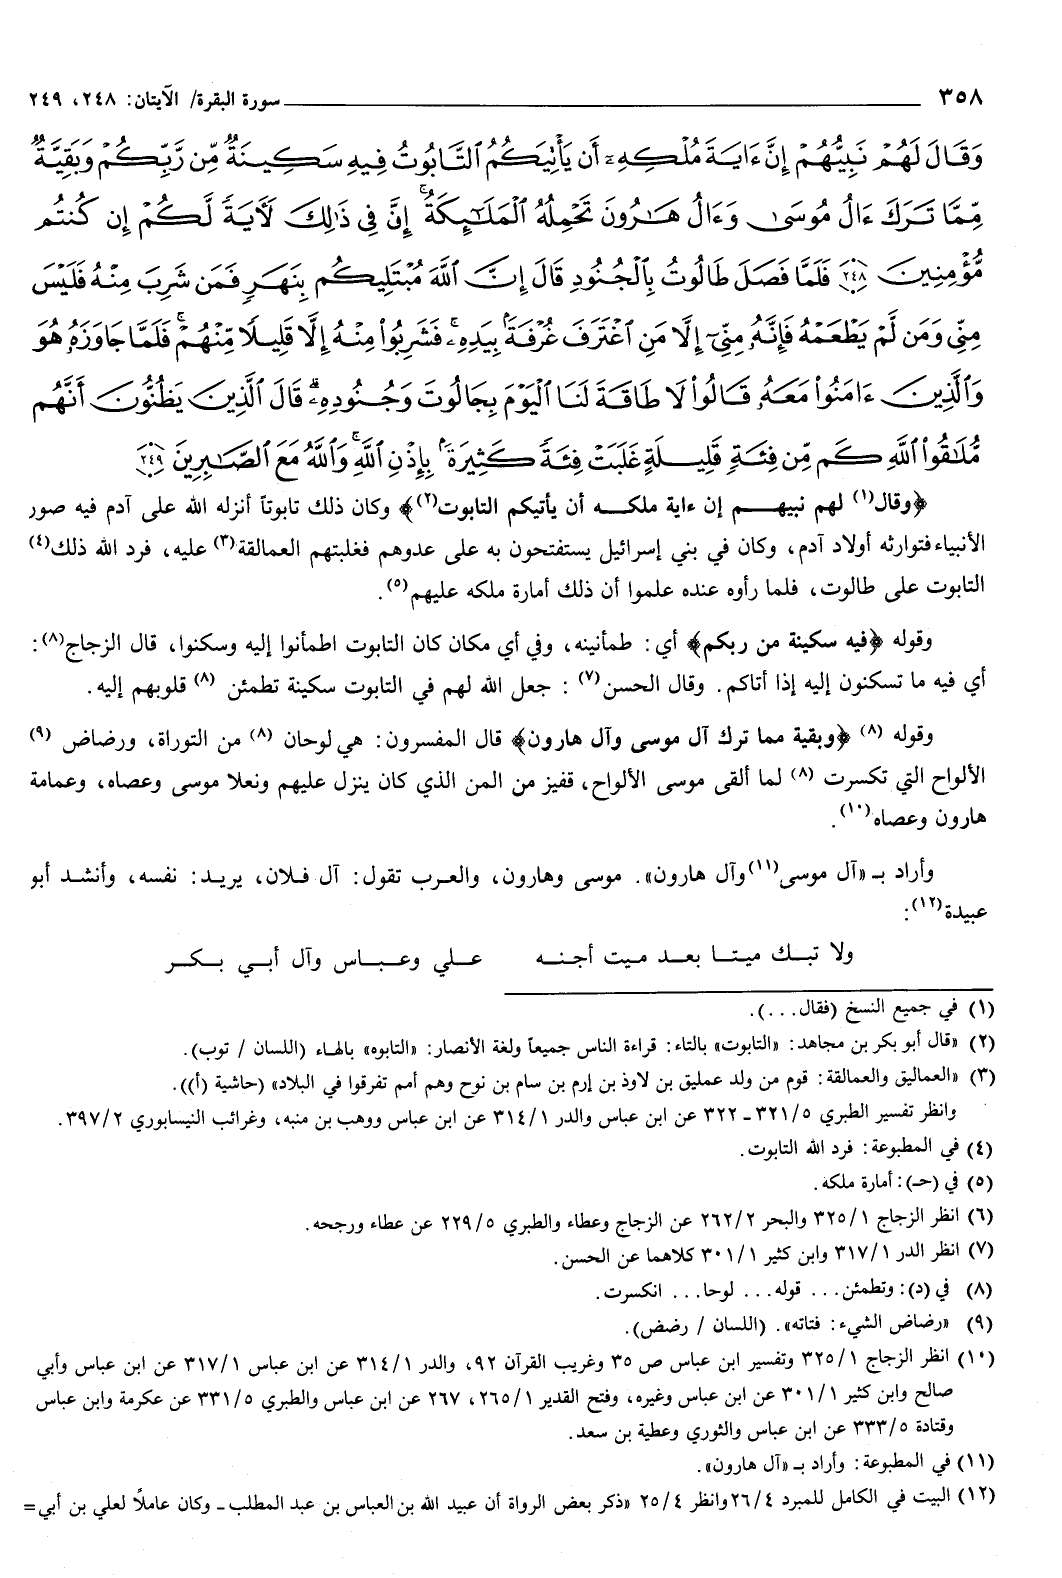 ٣٥٨ سورة البقرة/ الآيتان: ٢٤٨، ٢٤٩
وَقَالَ لَهُمْ نَبِيُّهُمْ إِنَّ ءَايَةَ مُلْكِهِۦٓ أَن يَأْتِيَكُمُ التَّابُوتُ فِيهِ سَكِينَةٌ مِّن رَّبِّكُمْ وَبَقِيَّةٌ
مِّمَّا تَرَكَ ءَالُ مُوسَىٰ وَءَالُ هَـٰرُونَ تَحْمِلُهُ ٱلْمَلَـٰٓئِكَةُ ۚ إِنَّ فِى ذَٰلِكَ لَآيَةً لَّكُمْ إِن كُنتُم
مُّؤْمِنِينَ ﴿٢٤٨﴾ فَلَمَّا فَصَلَ طَالُوتُ بِالْجُنُودِ قَالَ إِنَّ ٱللَّهَ مُبْتَلِيكُم بِنَهَرٍ فَمَن شَرِبَ مِنْهُ فَلَيْسَ
مِنِّى وَمَن لَّمْ يَطْعَمْهُ فَإِنَّهُۥ مِنِّىٓ إِلَّا مَنِ ٱغْتَرَفَ غُرْفَةًۢ بِيَدِهِۦ ۚ فَشَرِبُوا۟ مِنْهُ إِلَّا قَلِيلًا مِّنْهُمْ ۚ فَلَمَّا جَاوَزَهُۥ هُوَ
وَٱلَّذِينَ ءَامَنُوا۟ مَعَهُۥ قَالُوا۟ لَا طَاقَةَ لَنَا ٱلْيَوْمَ بِجَالُوتَ وَجُنُودِهِۦ ۚ قَالَ ٱلَّذِينَ يَظُنُّونَ أَنَّهُم
مُّلَـٰقُوا۟ ٱللَّهِ كَم مِّن فِئَةٍ قَلِيلَةٍ غَلَبَتْ فِئَةً كَثِيرَةًۢ بِإِذْنِ ٱللَّهِ ۗ وَٱللَّهُ مَعَ ٱلصَّـٰبِرِينَ ﴿٢٤٩﴾
﴿وقال(١) لهم نبيهم إن ءاية ملكه أن يأتيكم التابوت(٢)﴾ وكان ذلك تابوتاً أنزله الله على آدم فيه صور
الأنبياء فتوارثه أولاد آدم، وكان في بني إسرائيل يستفتحون به على عدوهم فغلبتهم العمالقة(٣) عليه، فرد الله ذلك(٤)
التابوت على طالوت، فلما رأوه عنده علموا أن ذلك أمارة ملكه عليهم(٥).
وقوله ﴿فيه سكينة من ربكم﴾ أي: طمأنينه، وفي أي مكان كان التابوت اطمأنوا إليه وسكنوا، قال الزجاج(٨):
أي فيه ما تسكنون إليه إذا أتاكم. وقال الحسن(٧) : جعل الله لهم في التابوت سكينة تطمئن (٨) قلوبهم إليه.
وقوله (٨) ﴿وبقية مما ترك آل موسى وآل هارون﴾ قال المفسرون: هي لوحان (٨) من التوراة، ورضاض (٩)
الألواح التي تكسرت (٨) لما ألقى موسى الألواح، قفيز من المن الذي كان ينزل عليهم ونعلا موسى وعصاه، وعمامة
هارون وعصاه(١٠).
وأراد بـ «آل موسى(١١) وآل هارون». موسى وهارون، والعرب تقول: آل فلان، يريد: نفسه، وأنشد أبو
عبيدة(١٢):
ولا تبك ميتا بعد ميت أجنه علي وعباس وآل أبي بكر
(١) في جميع النسخ (فقال...).
(٢) «قال أبو بكر بن مجاهد: «التابوت» بالتاء: قراءة الناس جميعاً ولغة الأنصار: «التابوه» بالهاء (اللسان / توب).
(٣) «العماليق والعمالقة: قوم من ولد عمليق بن لاوذ بن إرم بن سام بن نوح وهم أمم تفرقوا في البلاد» (حاشية (أ)).
وانظر تفسير الطبري ٥/ ٣٢١ ـ ٣٢٢ عن ابن عباس والدر ١/ ٣١٤ عن ابن عباس ووهب بن منبه، وغرائب النيسابوري ٢/ ٣٩٧.
(٤) في المطبوعة: فرد الله التابوت.
(٥) في (حـ): أمارة ملكه.
(٦) انظر الزجاج ١/ ٣٢٥ والبحر ٢/ ٢٦٢ عن الزجاج وعطاء والطبري ٥/ ٢٢٩ عن عطاء ورجحه.
(٧) انظر الدر ١/ ٣١٧ وابن كثير ١/ ٣٠١ كلاهما عن الحسن.
(٨) في (د): وتطمئن... قوله... لوحا... انكسرت.
(٩) «رضاض الشيء: فتاته». (اللسان / رضض).
(١٠) انظر الزجاج ١/ ٣٢٥ وتفسير ابن عباس ص ٣٥ وغريب القرآن ٩٢، والدر ١/ ٣١٤ عن ابن عباس ١/ ٣١٧ عن ابن عباس وأبي
صالح وابن كثير ١/ ٣٠١ عن ابن عباس وغيره، وفتح القدير ١/ ٢٦٥، ٢٦٧ عن ابن عباس والطبري ٥/ ٣٣١ عن عكرمة وابن عباس
وقتادة ٥/ ٣٣٣ عن ابن عباس والثوري وعطية بن سعد.
(١١) في المطبوعة: وأراد بـ «آل هارون».
(١٢) البيت في الكامل للمبرد ٤/ ٢٦ وانظر ٤/ ٢٥ «ذكر بعض الرواة أن عبيد الله بن العباس بن عبد المطلب ـ وكان عاملاً لعلي بن أبي =